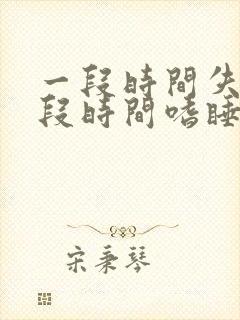 一段時間失
段時間嗜睡
宋秉琴